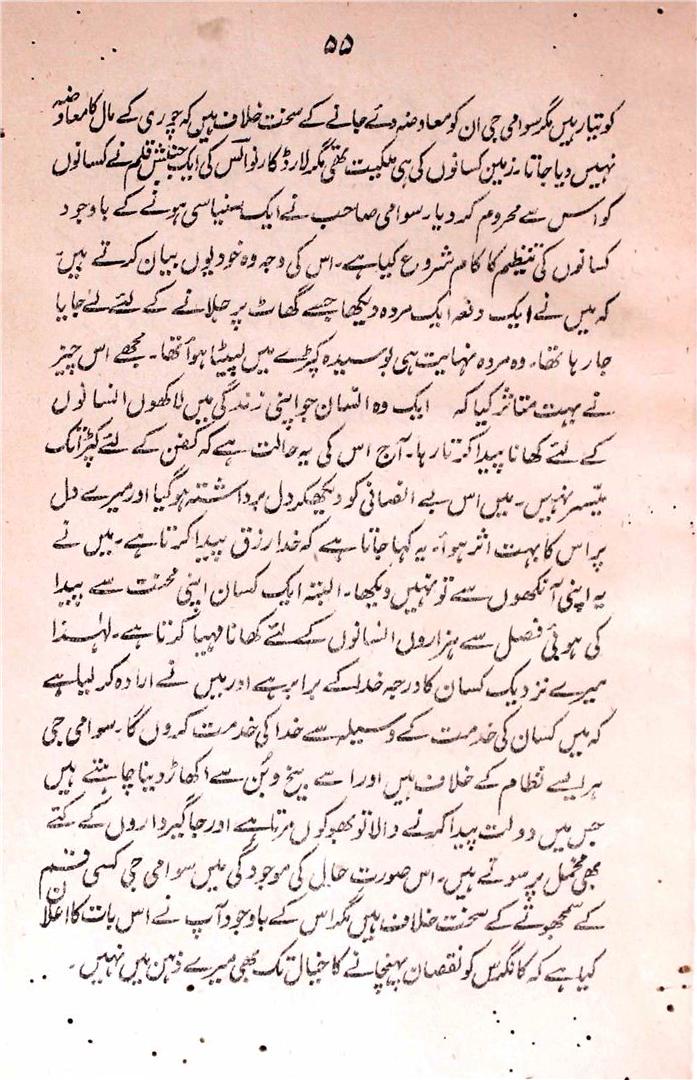 ۵۵
کو تیار ہیں مگر سوامی جی ان کو معاوضہ دئے جانے کے سخت خلاف ہیں کہ چوری کے مال کا معاوضہ
نہیں دیا جاتا۔ زمین کسانوں کی ہی ملکیت تھی مگر لارڈ کارنوالس کی ایک جنبش قلم نے کسانوں
کو اس سے محروم کر دیا۔ سوامی صاحب نے ایک سنیاسی ہونے کے باوجود
کسانوں کی تنظیم کا کام شروع کیا ہے۔ اس کی وجہ وہ خود یوں بیان کرتے ہیں
کہ میں نے ایک دفعہ ایک مردہ دیکھا جسے گھاٹ پر جلانے کے لئے لے جایا
جا رہا تھا۔ وہ مردہ نہایت ہی بوسیدہ کپڑے میں لپیٹا ہوأ تھا۔ مجھے اس چیز
نے بہت متاثر کیا کہ ایک وہ انسان جو اپنی زندگی میں لاکھوں انسانوں
کے لئے کھانا پیدا کرتا رہا۔ آج اس کی یہ حالت ہے کہ کفن کے لئے کپڑا تک
میسر نہیں۔ میں اس بے انصافی کو دیکھ کر دل برداشتہ ہو گیا اور میرے دل
پر اس کا بہت اثر ہوأ۔ یہ کہا جاتا ہے کہ خدا رزق پیدا کرتا ہے۔ میں نے
یہ اپنی آنکھوں سے تو نہیں دیکھا۔ البتہ ایک کسان اپنی محنت سے پیدا
کی ہوئی فصل سے ہزاروں انسانوں کے لئے کھانا مہیا کرتا ہے۔ لہٰذا
میرے نزدیک کسان کا درجہ خدا کے برابر ہے اور میں نے ارادہ کر لیا ہے
کہ میں کسان کی خدمت کے وسیلہ سے خدا کی خدمت کروں گا۔ سوامی جی
ہر ایسے نظام کے خلاف ہیں اور اسے بیخ و بُن سے اکھاڑ دینا چاہتے ہیں
جس میں دولت پیدا کرنے والا تو بھوکوں مرتا ہے اور جاگیرداروں کے کتے
بھی مخمل پر سوتے ہیں۔ اس صورت حال کی موجودگی میں سوامی جی کسی قسم
کے سمجھوتے کے سخت خلاف ہیں مگر اس کے باوجود آپ نے اس بات کا اعلان
کیا ہے کہ کانگرس کو نقصان پہنچانے کا خیال تک بھی میرے ذہن میں نہیں۔